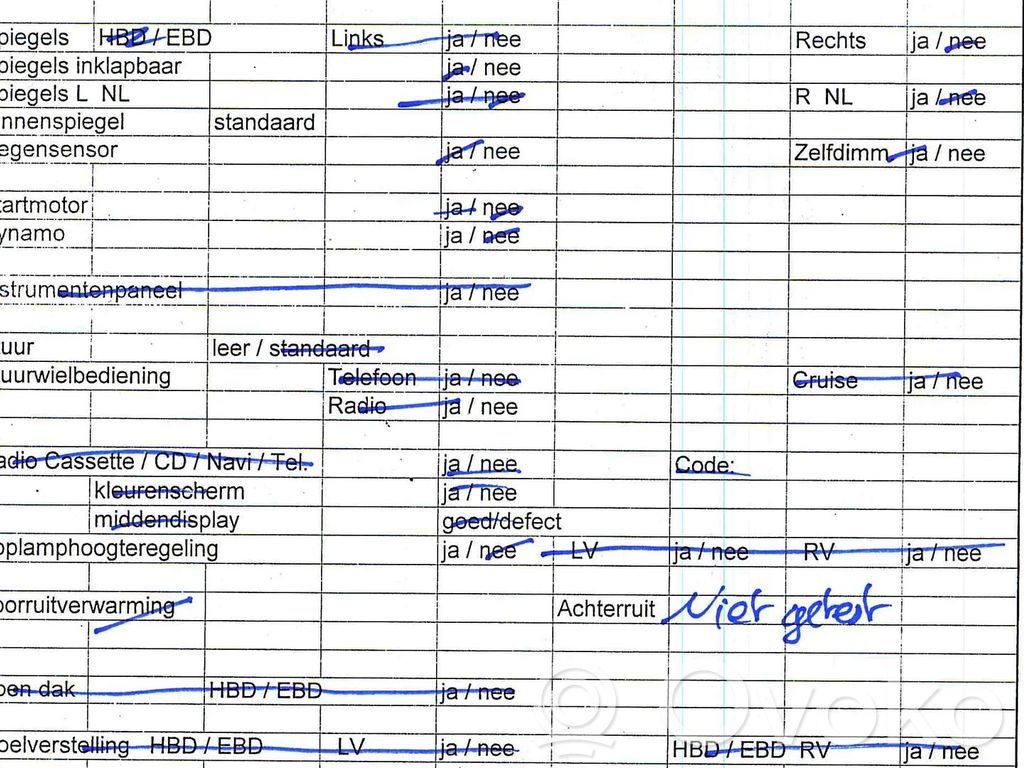 piegels HBD / EBD Links ja / nee Rechts ja / nee
piegels inklapbaar ja / nee
piegels L NL ja / nee R NL ja / nee
nnenspiegel standaard
egensensor ja / nee Zelfdimm ja / nee
tartmotor ja / nee
ynamo ja / nee
strumentenpaneel ja / nee
uur leer / standaard
uurwielbediening Telefoon ja / nee Cruise ja / nee
Radio ja / nee
adio Cassette / CD / Navi / Tel. ja / nee Code:
kleurenscherm ja / nee
middendisplay goed/defect
oplamphoogteregeling ja / nee LV ja / nee RV ja / nee
oorruitverwarming Achterruit Niet getest
pen dak HBD / EBD ja / nee
oelverstelling HBD / EBD LV ja / nee HBD / EBD RV ja / nee
Ovoko